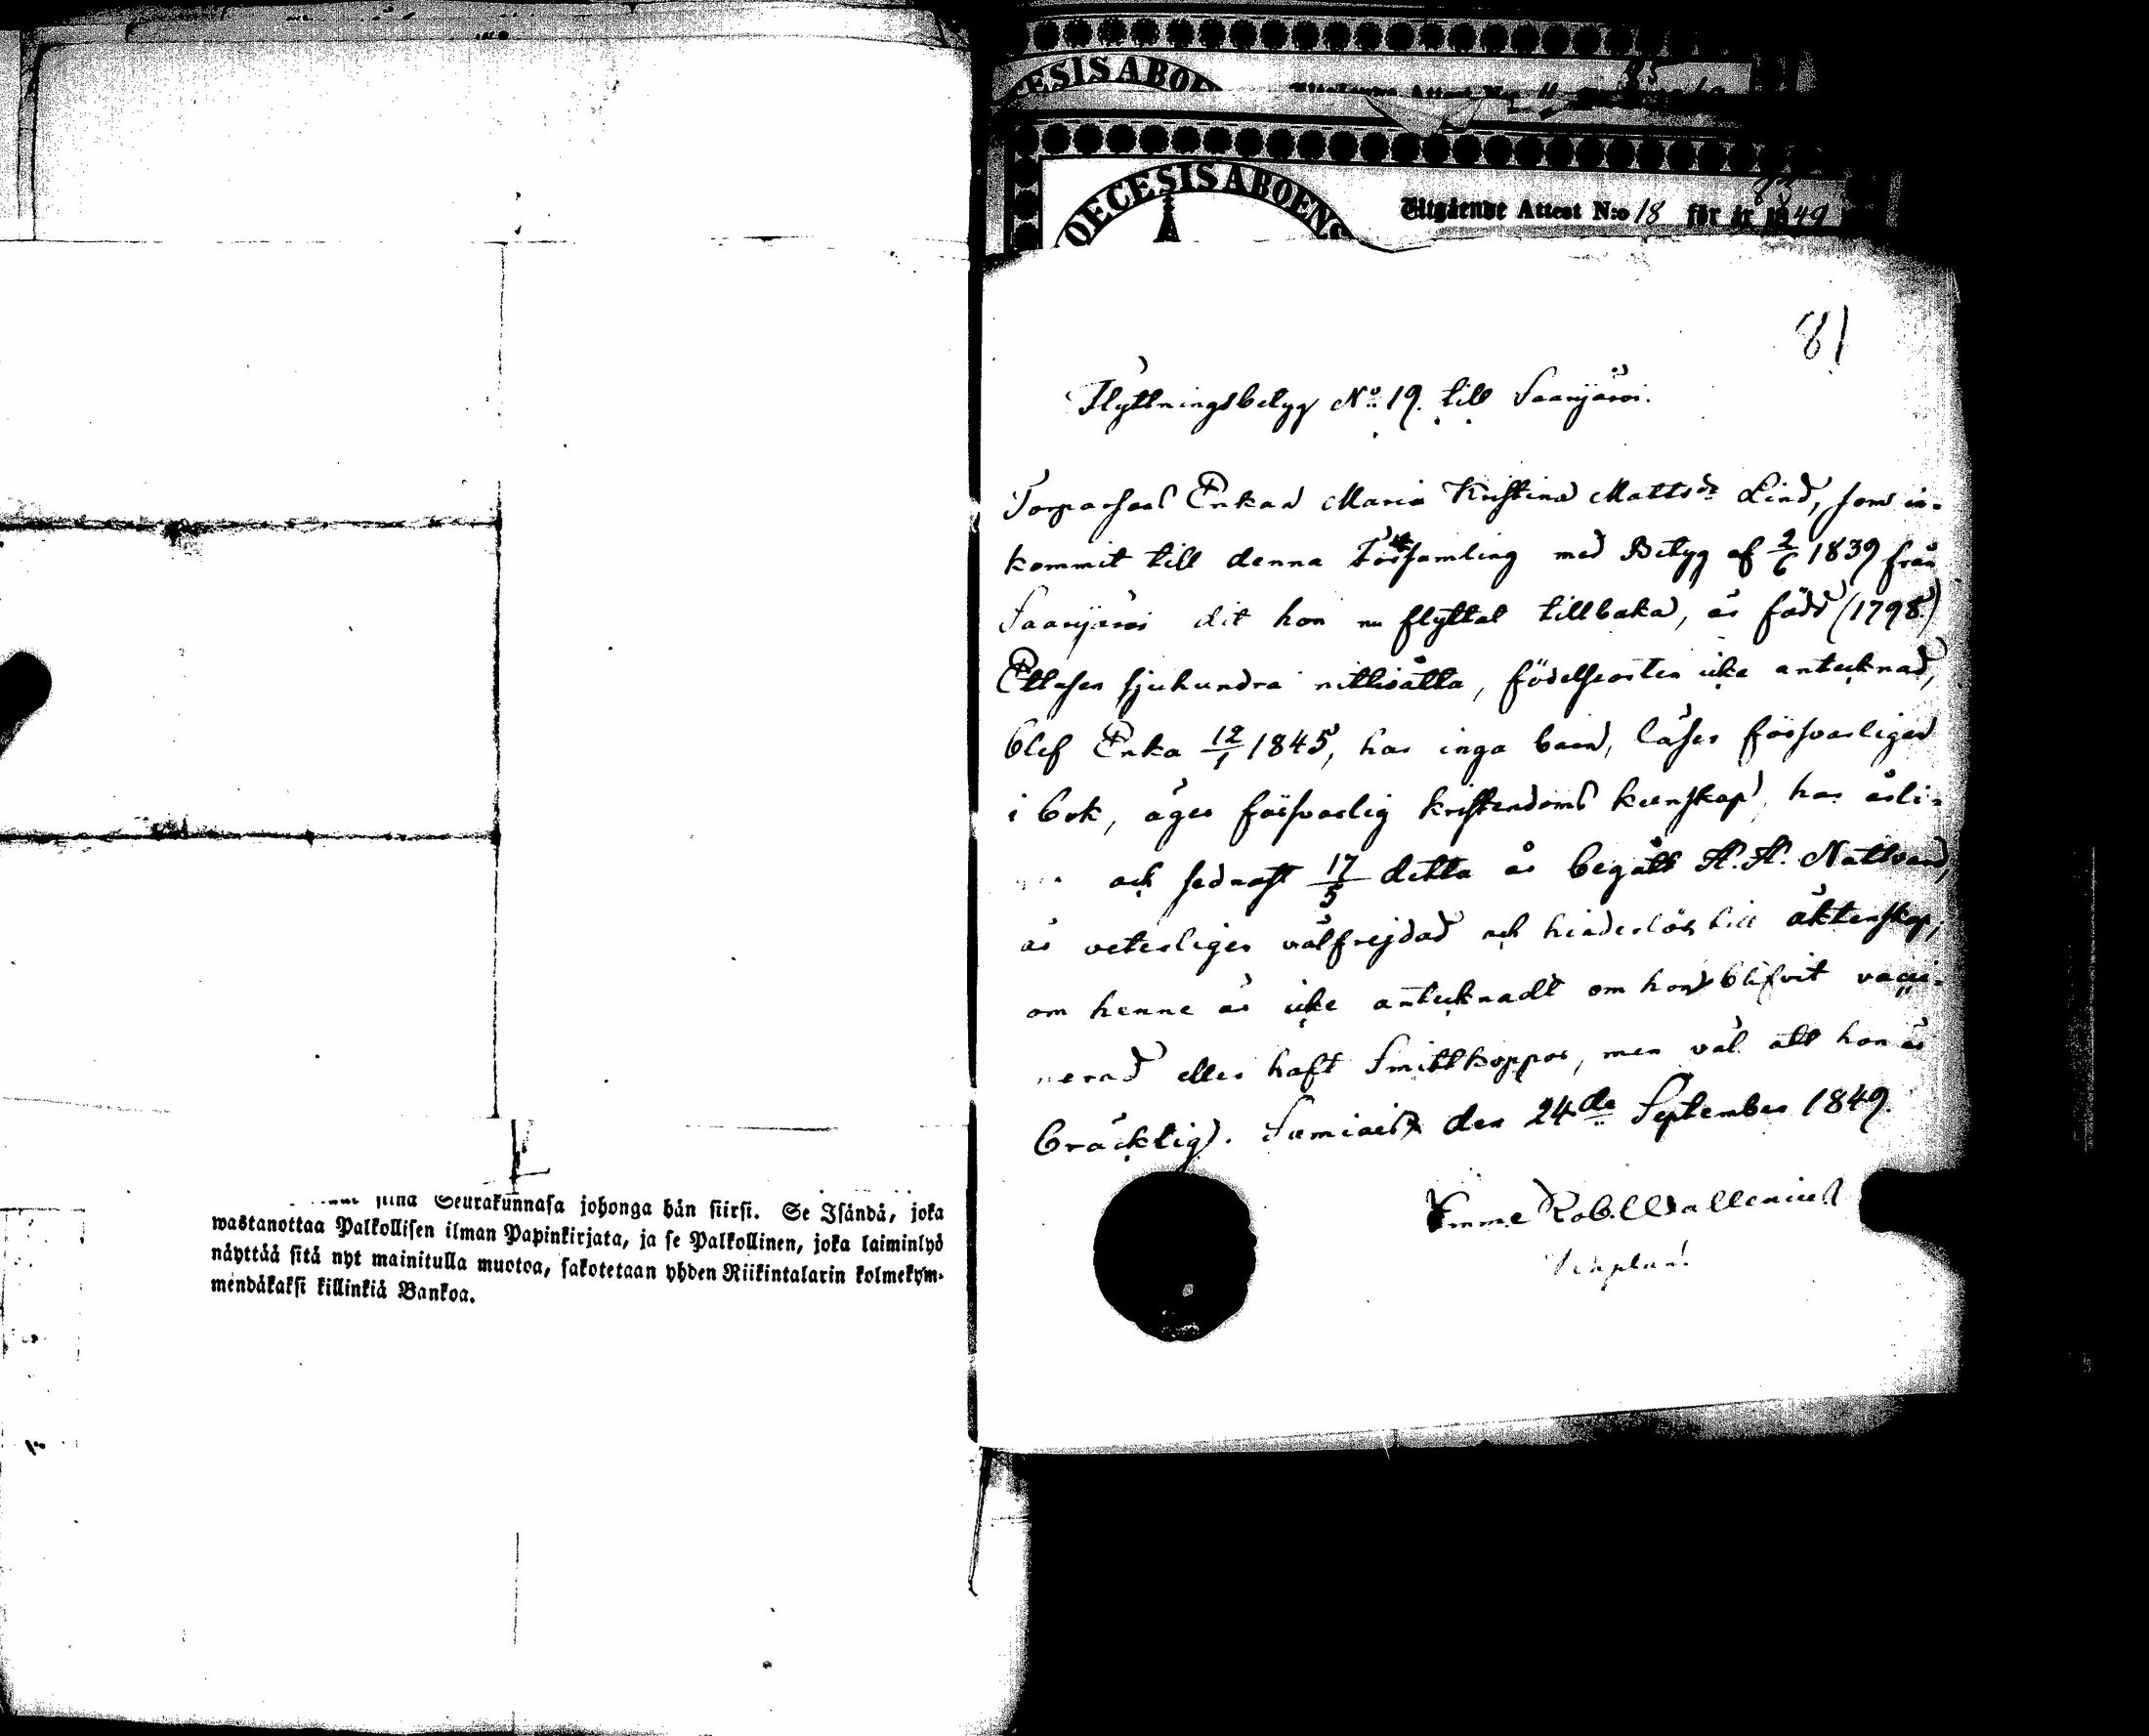 Seurakunnasa johonga hän siirsi. Se Isändä, joka
wastanottaa Palkollisen ilman Papinkirjata, ja se Palkollinen, joka laiminlyö
näyttää sitä nyt mainitulla muotoa, sakotetaan yhden Riikintalarin kolmekym-
mendäkaksi killinkiä Bankoa.
ESIS ABOE
OECESIS ABOENS
Utgående Attest N:o 18 för år 1849
81
Flyttningsbetyg No 19. till Saarijärvi.
Torparens Enkan Maria Kristina Mattsdr Lind, som in-
kommit till denna Församling med Betyg af 2/6 1839 från
Saarijärvi dit hon nu flyttat tillbaka, är född (1798)
Ettusen sjuhundra nittioåtta, födelseorten icke antecknad,
blef Enka 12/1 1845, har inga barn, läser försvarligen
i bok, äger försvarlig kristendoms kunskap, har årli-
och sednast 17/5 detta år begått H. H. Nattvard,
är veterligen välfrejdad och hinderlös till äktenskap,
om henne är icke antecknadt om hon blifvit vacci-
nerad eller haft Smittkoppor, men väl att hon är
bräcklig. Sumiais den 24de September 1849.
Rob. Wallenius
Kaplan.